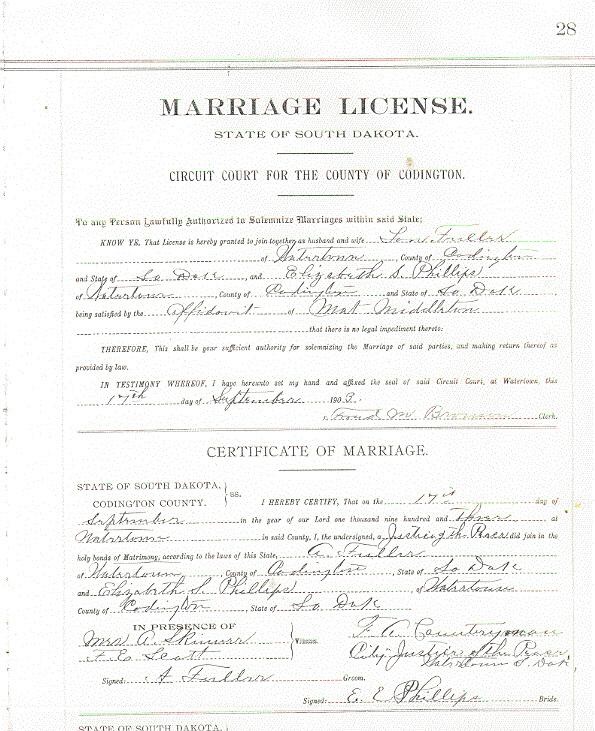 28
MARRIAGE LICENSE.
STATE OF SOUTH DAKOTA.
CIRCUIT COURT FOR THE COUNTY OF CODINGTON.
To any Person Lawfully Authorized to Solemnize Marriages within said State:
KNOW YE, That License is hereby granted to join together as husband and wife Fuller
of Watertown, County of Codington
and State of So Dak, and Elizabeth S. Phillips
of Watertown, County of Codington and State of So Dak
being satisfied by the Affidavit of Mat Middleton
that there is no legal impediment thereto:
THEREFORE, This shall be your sufficient authority for solemnizing the Marriage of said parties, and making return thereof as
provided by law.
IN TESTIMONY WHEREOF, I have hereunto set my hand and affixed the seal of said Circuit Court, at Watertown, this
17th day of September 1903.
M Clerk.
CERTIFICATE OF MARRIAGE.
STATE OF SOUTH DAKOTA,
CODINGTON COUNTY. } ss. I HEREBY CERTIFY, That on the 17th day of
September in the year of our Lord one thousand nine hundred and Three at
Watertown in said County, I, the undersigned, a Justice of the Peace did join in the
holy bonds of Matrimony, according to the laws of this State, A. Fuller
of Watertown, County of Codington, State of So Dak
and Elizabeth S. Phillips of Watertown
County of Codington, State of So. Dak
IN PRESENCE OF
Mrs A. Skinner
F. E. Scott } Witnesses.
F. A. Countryman
City Justice of the Peace
Watertown S. Dak
Signed: A Fuller Groom.
Signed: E. E. Phillips Bride.
STATE OF SOUTH DAKOTA,